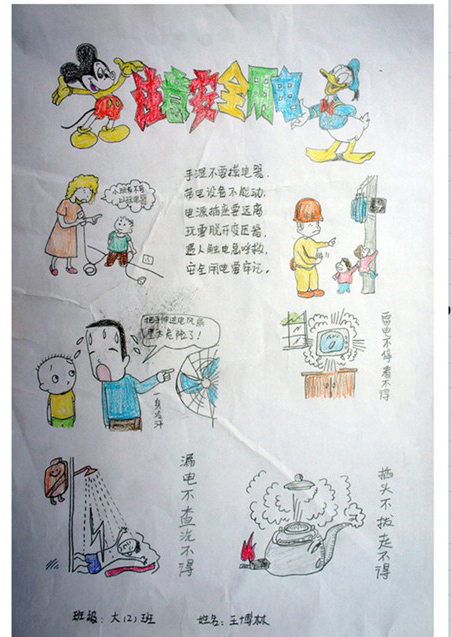 注意安全用电
手湿不要摸电器,
带电设备不能动,
电源插座要远离
玩耍躲开变压器,
遇人触电急呼救,
安全用电要牢记。
小孩
把手伸进电风扇
里太危险了!
一身冷汗
雷电不停看不得
漏电不查洗不得
插头不拔走不得
班级:大(2)班 姓名:王博林